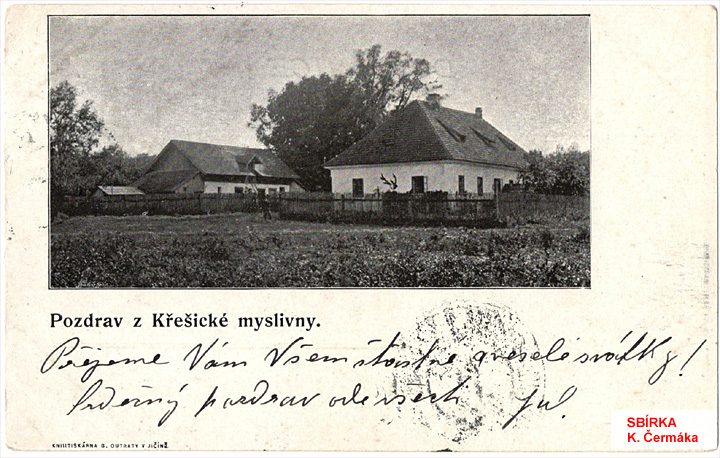 Pozdrav z Křešické myslivny.
Přejeme Vám Všem šťastné a veselé svátky!
Srdečný pozdrav ode všech
KNIHTISKÁRNA B. OUTRATY V JIČÍNĚ
SBÍRKA
K. Čermáka